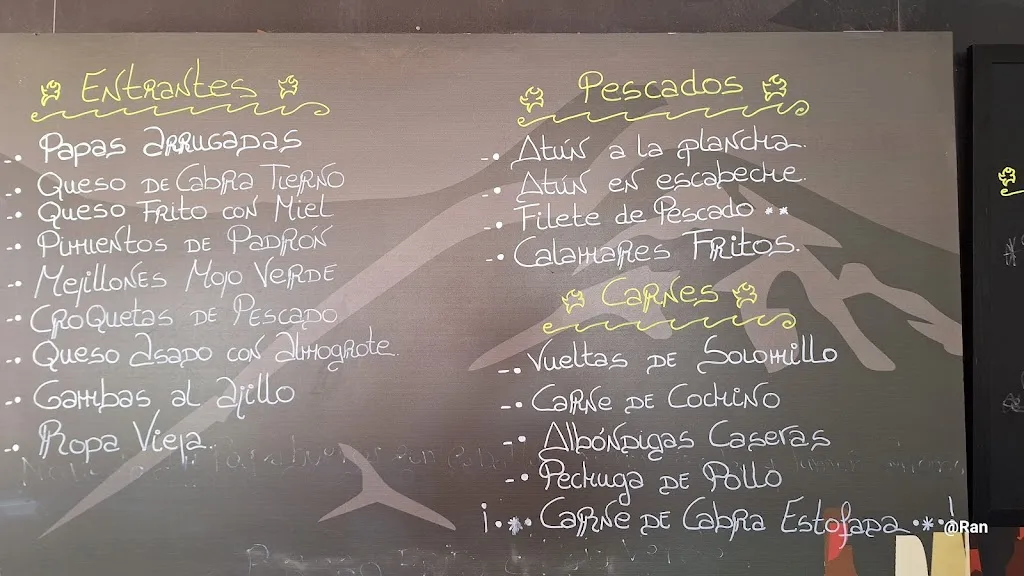 Entrantes
-. Papas Arrugadas
-. Queso de Cabra Tierno
-. Queso Frito con Miel
-. Pimientos de Padrón
-. Mejillones Mojo Verde
-. Croquetas de Pescado
-. Queso Asado con Almogrote.
-. Gambas al Ajillo
-. Ropa Vieja.
Pescados
-. Atún a la plancha.
-. Atún en escabeche.
-. Filete de Pescado **
-. Calamares Fritos.
Carnes
-. Vueltas de Solomillo
-. Carne de Cochino
-. Albóndigas Caseras
-. Pechuga de Pollo
¡.*. Carne de Cabra Estofada .*.!
@Ran